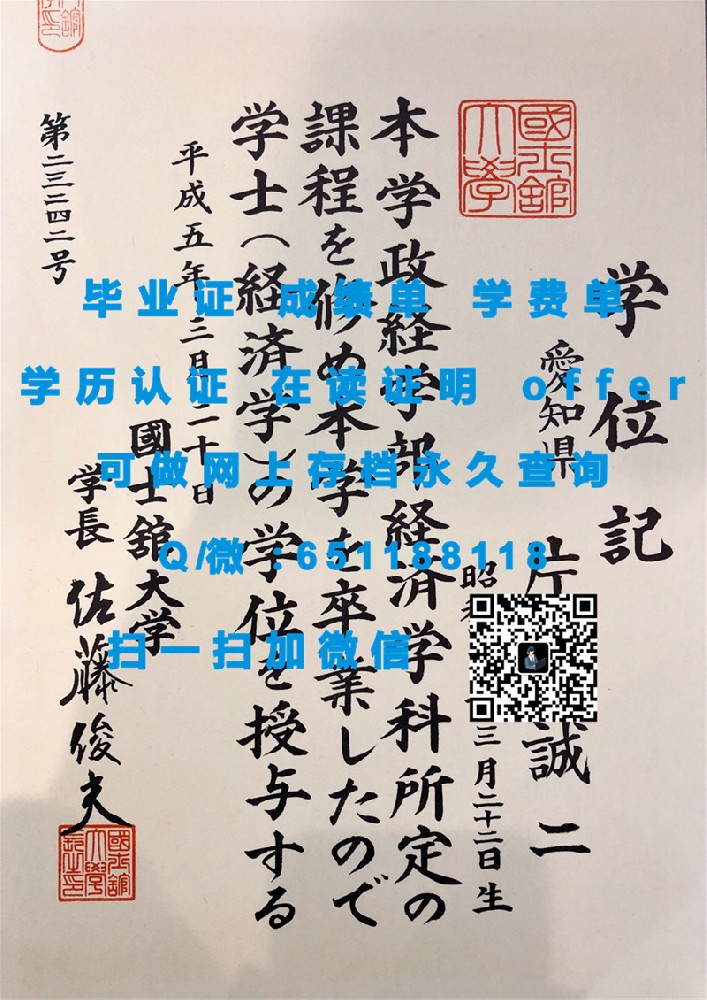 学位記
愛知県
片
誠二
昭
三月二十二日生
本学政経学部経済学科所定の
課程を修め本学を卒業したので
学士（経済学）の学位を授与する
平成五年三月二十日
國士舘大学
学長 佐藤俊夫
第二三二四二号
國士舘大學
毕业证 成绩单 学费单
学历认证 在读证明 offer
可做网上存档永久查询
Q/微:651188118
扫一扫加微信